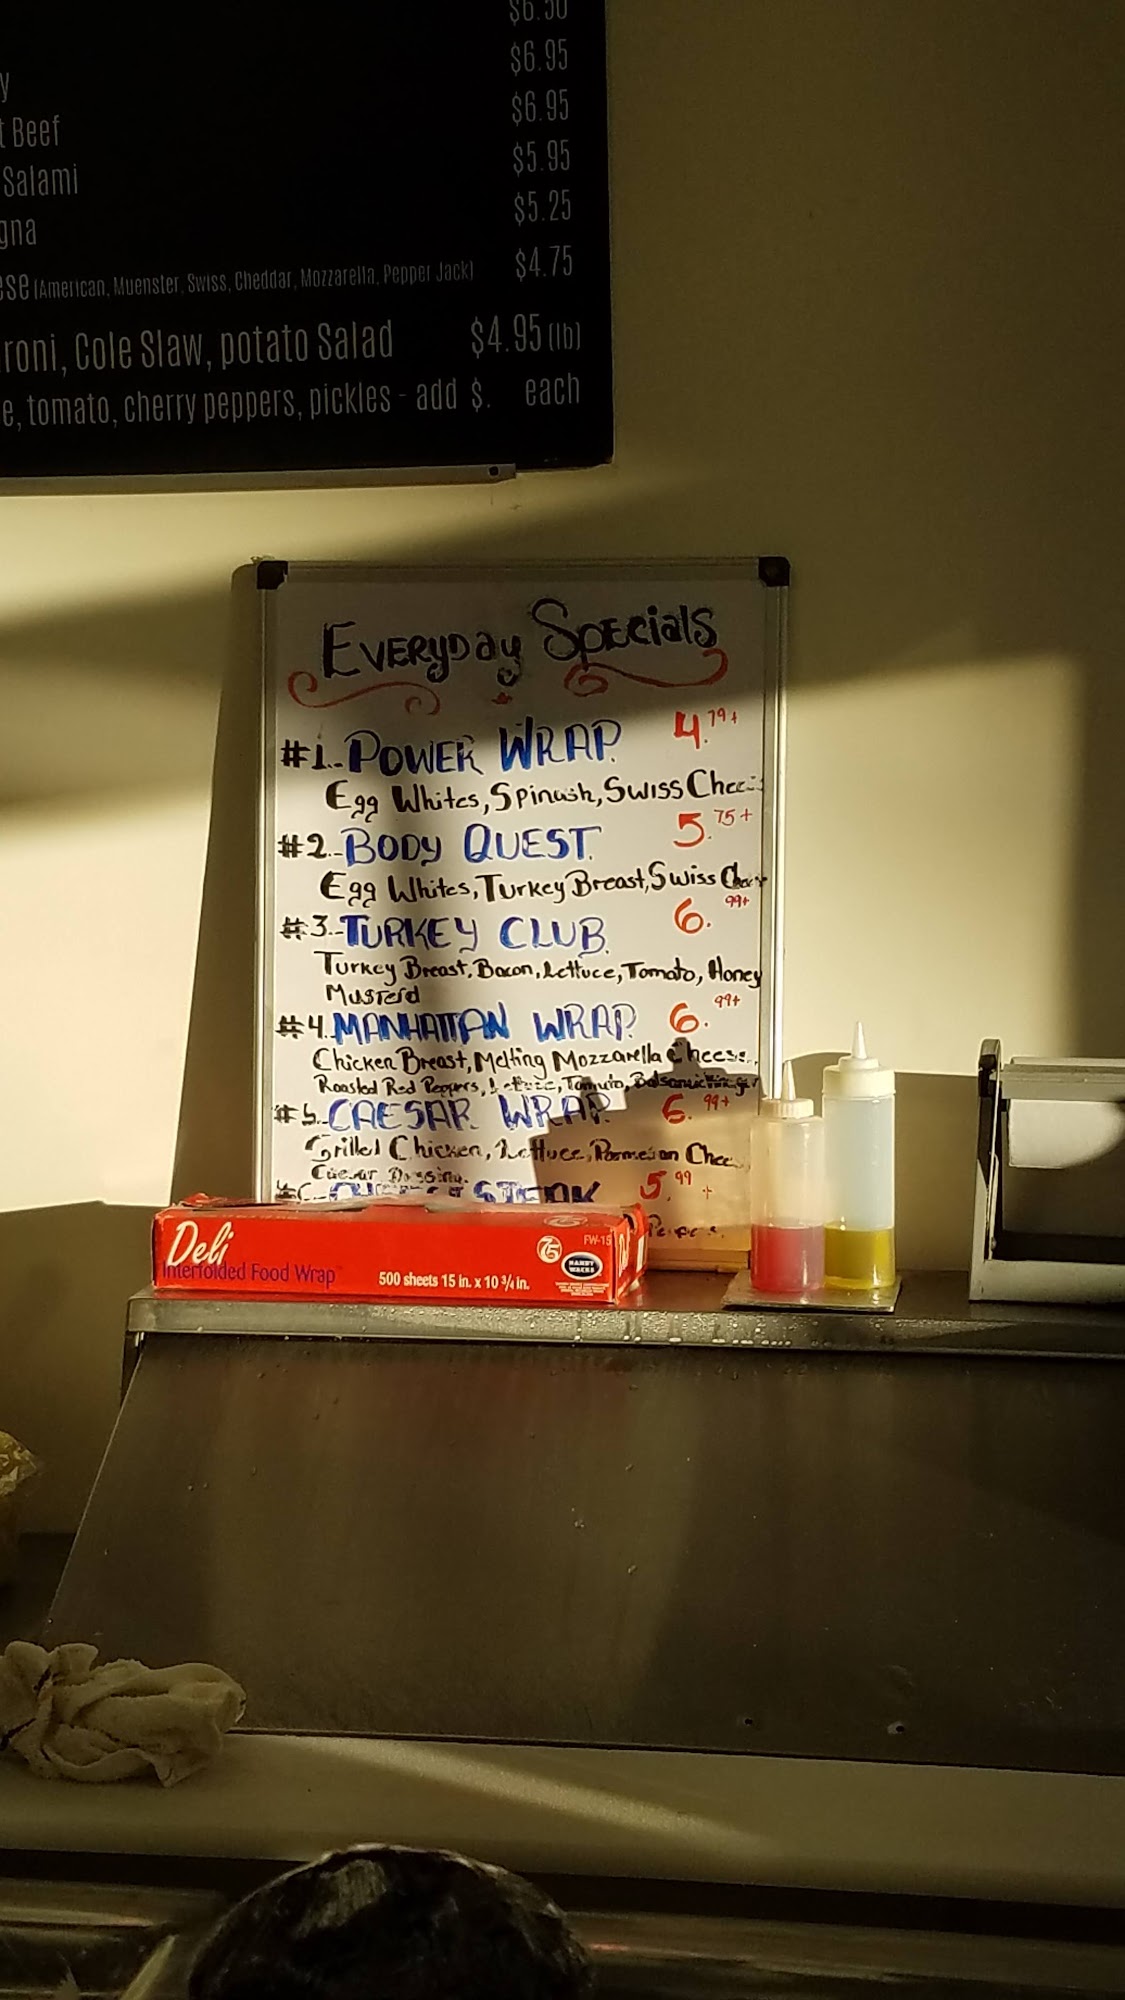 $6.50
y $6.95
t Beef $6.95
Salami $5.95
gna $5.25
ese (American, Muenster, Swiss, Cheddar, Mozzarella, Pepper Jack) $4.75
roni, Cole Slaw, potato Salad $4.95 (lb)
e, tomato, cherry peppers, pickles - add $. each
Everyday Specials
#1. Power Wrap 4.79+
Egg Whites, Spinash, Swiss Chee
#2. Body Quest 5.75+
Egg Whites, Turkey Breast, Swiss Chee
#3. Turkey Club 6.99+
Turkey Breast, Bacon, Lettuce, Tomato, Honey
Musterd
#4. Manhattan Wrap 6.99+
Chicken Breast, Melting Mozzarella Cheese,
Roasted Red Peppers, Lettuce, Tomato,
#5. Caesar Wrap 6.99+
Grilled Chicken, Lettuce, Parmesan Chee
Caesar Dressing.
Steak 5.99+
Deli
Interfolded Food Wrap
500 sheets 15 in. x 10 3/4 in.
75
FW-15
HANDY WACKS